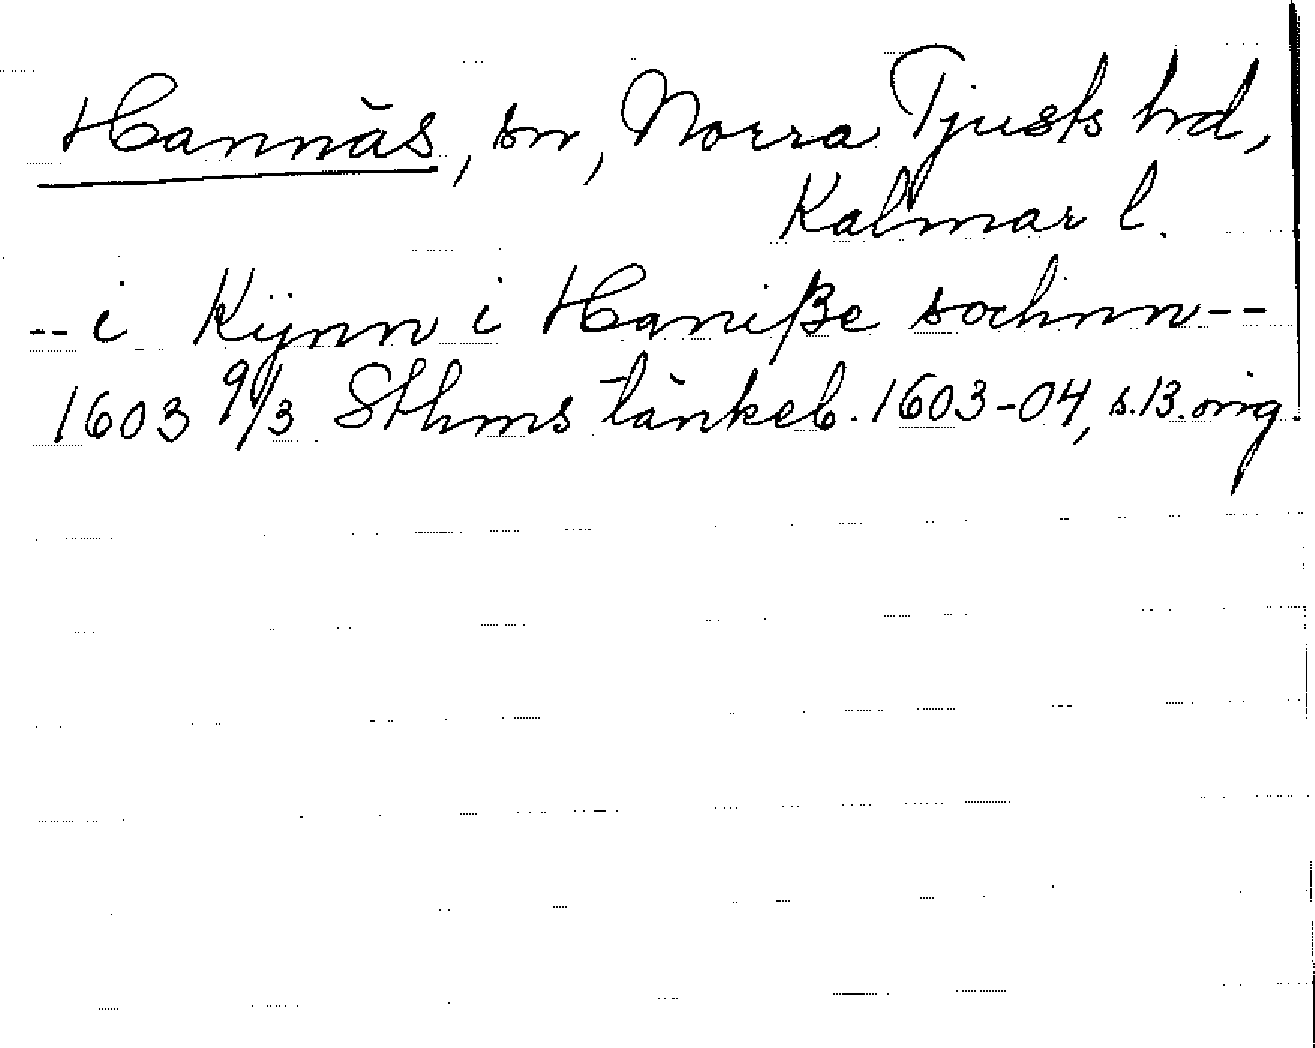 Hannäs, sn, Norra Tjusts hd,
Kalmar l.
-- i Kÿnn i Haniße sochnn --
1603 9/3 Sthms tänkeb. 1603-04, s. 13. orig.